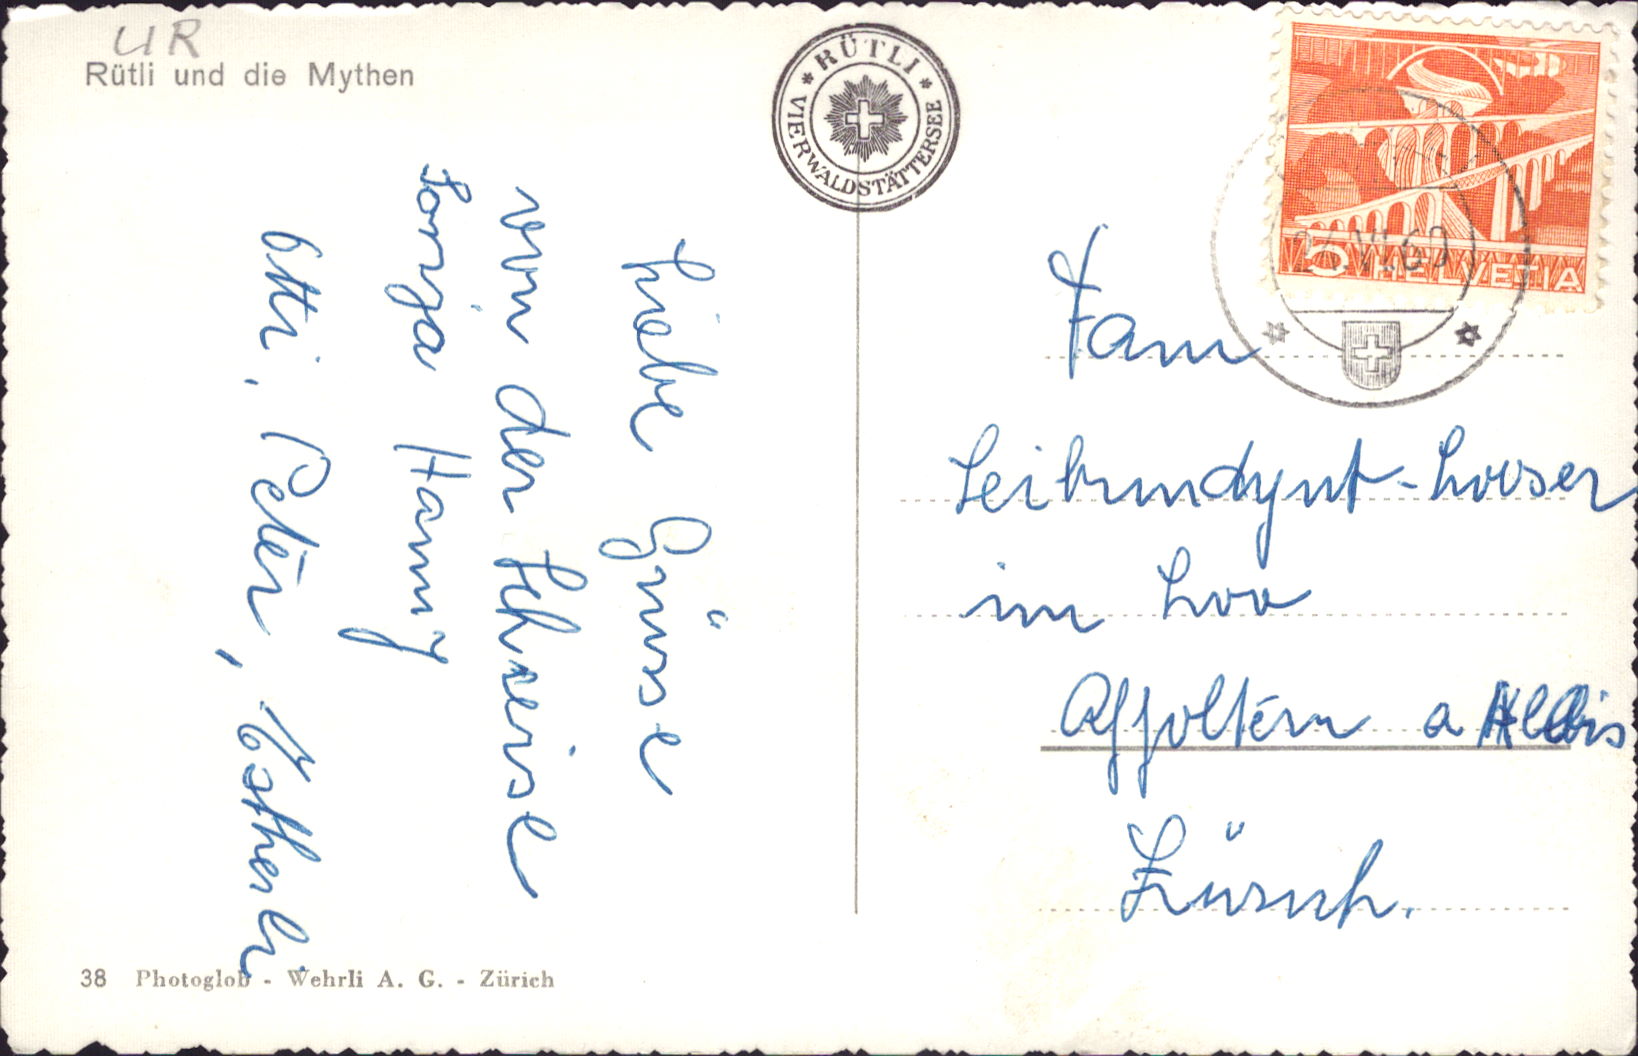 UR
Rütli und die Mythen
* RÜTLI * VIERWALDSTÄTTERSEE
5 HELVETIA
VI 60
Liebe Grüsse
von der Schreise
Sonja Hanny
Otti. Peter, Estherli
Fam
Leibundgut-Looser
im Loo
Affoltern a Albis
Zürich.
38 Photoglob - Wehrli A. G. - Zürich